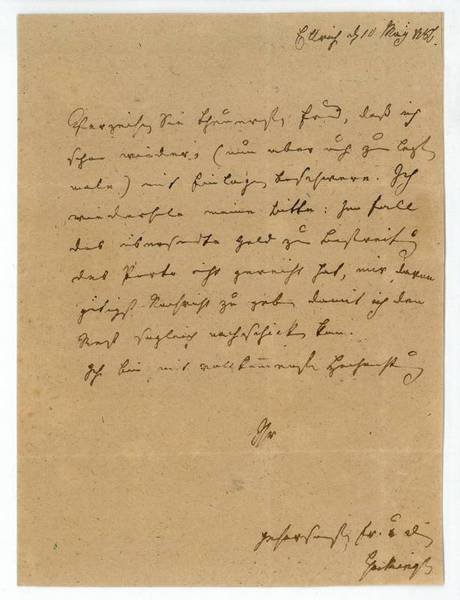 Ellrich d 10 May
Verzeihen Sie theuerster Freund, daß ich
schon wieder, (nun aber auch zum lezten
male) mit Einlagen beschwere. Ich
wiederhole meine Bitte: Im Fall
das übersandte Geld zu Bestreitung
des Porto nicht gereicht hat, mir davon
gütigst Nachricht zu geben damit ich den
Rest sogleich nachschicken kan.
Ich bin mit vollkommenster Hochachtung
Ihr
gehorsamster Fr. u
Goekingk